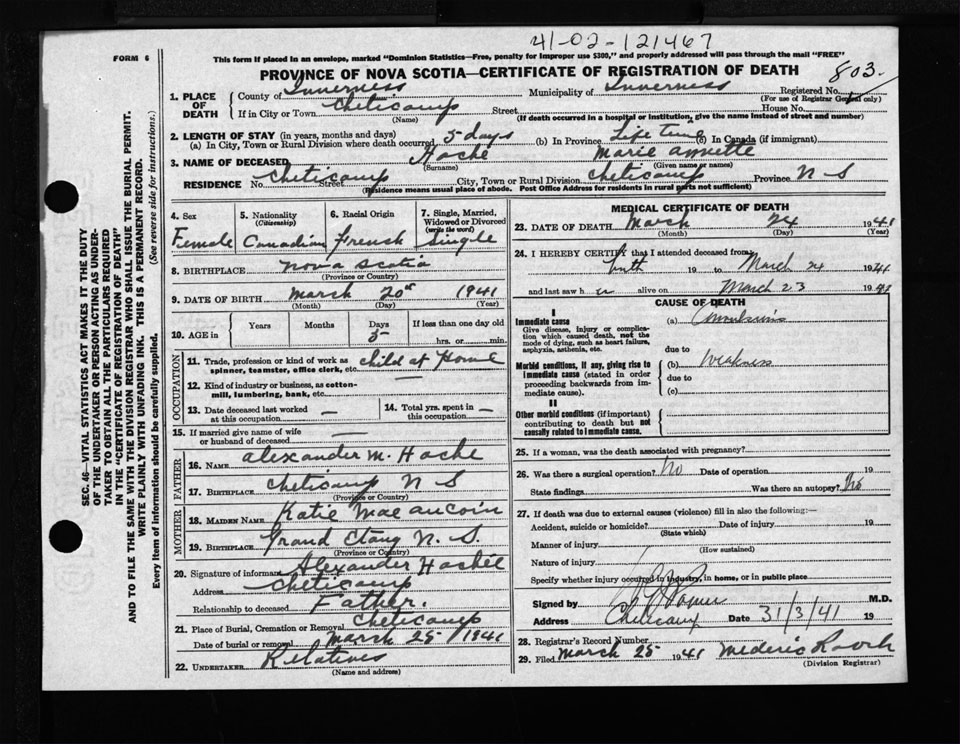 41-02-121467
FORM 6
This form if placed in an envelope, marked "Dominion Statistics—Free, penalty for improper use $300," and properly addressed will pass through the mail "FREE"
PROVINCE OF NOVA SCOTIA—CERTIFICATE OF REGISTRATION OF DEATH
803.
1. PLACE OF DEATH
County of Inverness Municipality of Inverness Registered No.
(For use of Registrar General only)
If in City or Town Cheticamp Street House No.
(Name) (If death occurred in a hospital or institution, give the name instead of street and number)
2. LENGTH OF STAY (in years, months and days)
(a) In City, Town or Rural Division where death occurred 5 days (b) In Province Life time (c) In Canada (if immigrant)
3. NAME OF DECEASED Hache Marie Annette
(Surname) (Given name or names)
RESIDENCE No. Cheticamp Street City, Town or Rural Division Cheticamp Province N S
(Residence means usual place of abode. Post Office Address for residents in rural parts not sufficient)
4. Sex Female
5. Nationality (Citizenship) Canadian
6. Racial Origin French
7. Single, Married, Widowed or Divorced (write the word) Single
8. BIRTHPLACE Nova Scotia
(Province or Country)
9. DATE OF BIRTH March 20 1941
(Month) (Day) (Year)
10. AGE in Years Months Days 5 If less than one day old hrs. or min.
OCCUPATION
11. Trade, profession or kind of work as spinner, teamster, office clerk, etc. child at Home
12. Kind of industry or business, as cotton-mill, lumbering, bank, etc. —
13. Date deceased last worked at this occupation —
14. Total yrs. spent in this occupation —
15. If married give name of wife or husband of deceased —
FATHER
16. NAME Alexander M. Hache
17. BIRTHPLACE Cheticamp N S
(Province or Country)
MOTHER
18. MAIDEN NAME Katie Mae Aucoin
19. BIRTHPLACE Grand Etang N. S.
(Province or Country)
20. Signature of informant Alexander Hachee
Address Cheticamp
Relationship to deceased Father.
21. Place of Burial, Cremation or Removal Cheticamp
Date of burial or removal March 25 1941
22. UNDERTAKER Relatives
(Name and address)
MEDICAL CERTIFICATE OF DEATH
23. DATE OF DEATH March 24 1941
(Month) (Day) (Year)
24. I HEREBY CERTIFY that I attended deceased from
birth 19 to March 24 1941
and last saw h er alive on March 23 1941
CAUSE OF DEATH
I
Immediate cause
Give disease, injury or complication which caused death, not the mode of dying, such as heart failure, asphyxia, asthenia, etc.
(a)
due to
Morbid conditions, if any, giving rise to immediate cause (stated in order proceeding backwards from immediate cause).
(b) Weakness
due to
(c)
II
Other morbid conditions (if important) contributing to death but not causally related to immediate cause.
25. If a woman, was the death associated with pregnancy?
26. Was there a surgical operation? No Date of operation 19
State findings Was there an autopsy? No
27. If death was due to external causes (violence) fill in also the following:—
Accident, suicide or homicide? Date of injury 19
(State which)
Manner of injury
(How sustained)
Nature of injury
Specify whether injury occurred in industry, in home, or in public place
Signed by M.D.
Address Cheticamp Date 31/3/41 19
28. Registrar's Record Number
29. Filed March 25 1941 Mederic
(Division Registrar)
SEC. 46—VITAL STATISTICS ACT MAKES IT THE DUTY
OF THE UNDERTAKER OR PERSON ACTING AS UNDER-
TAKER TO OBTAIN ALL THE PARTICULARS REQUIRED
IN THE "CERTIFICATE OF REGISTRATION OF DEATH"
AND TO FILE THE SAME WITH THE DIVISION REGISTRAR WHO SHALL ISSUE THE BURIAL PERMIT.
WRITE PLAINLY WITH UNFADING INK. THIS IS A PERMANENT RECORD.
Every item of information should be carefully supplied. (See reverse side for instructions.)